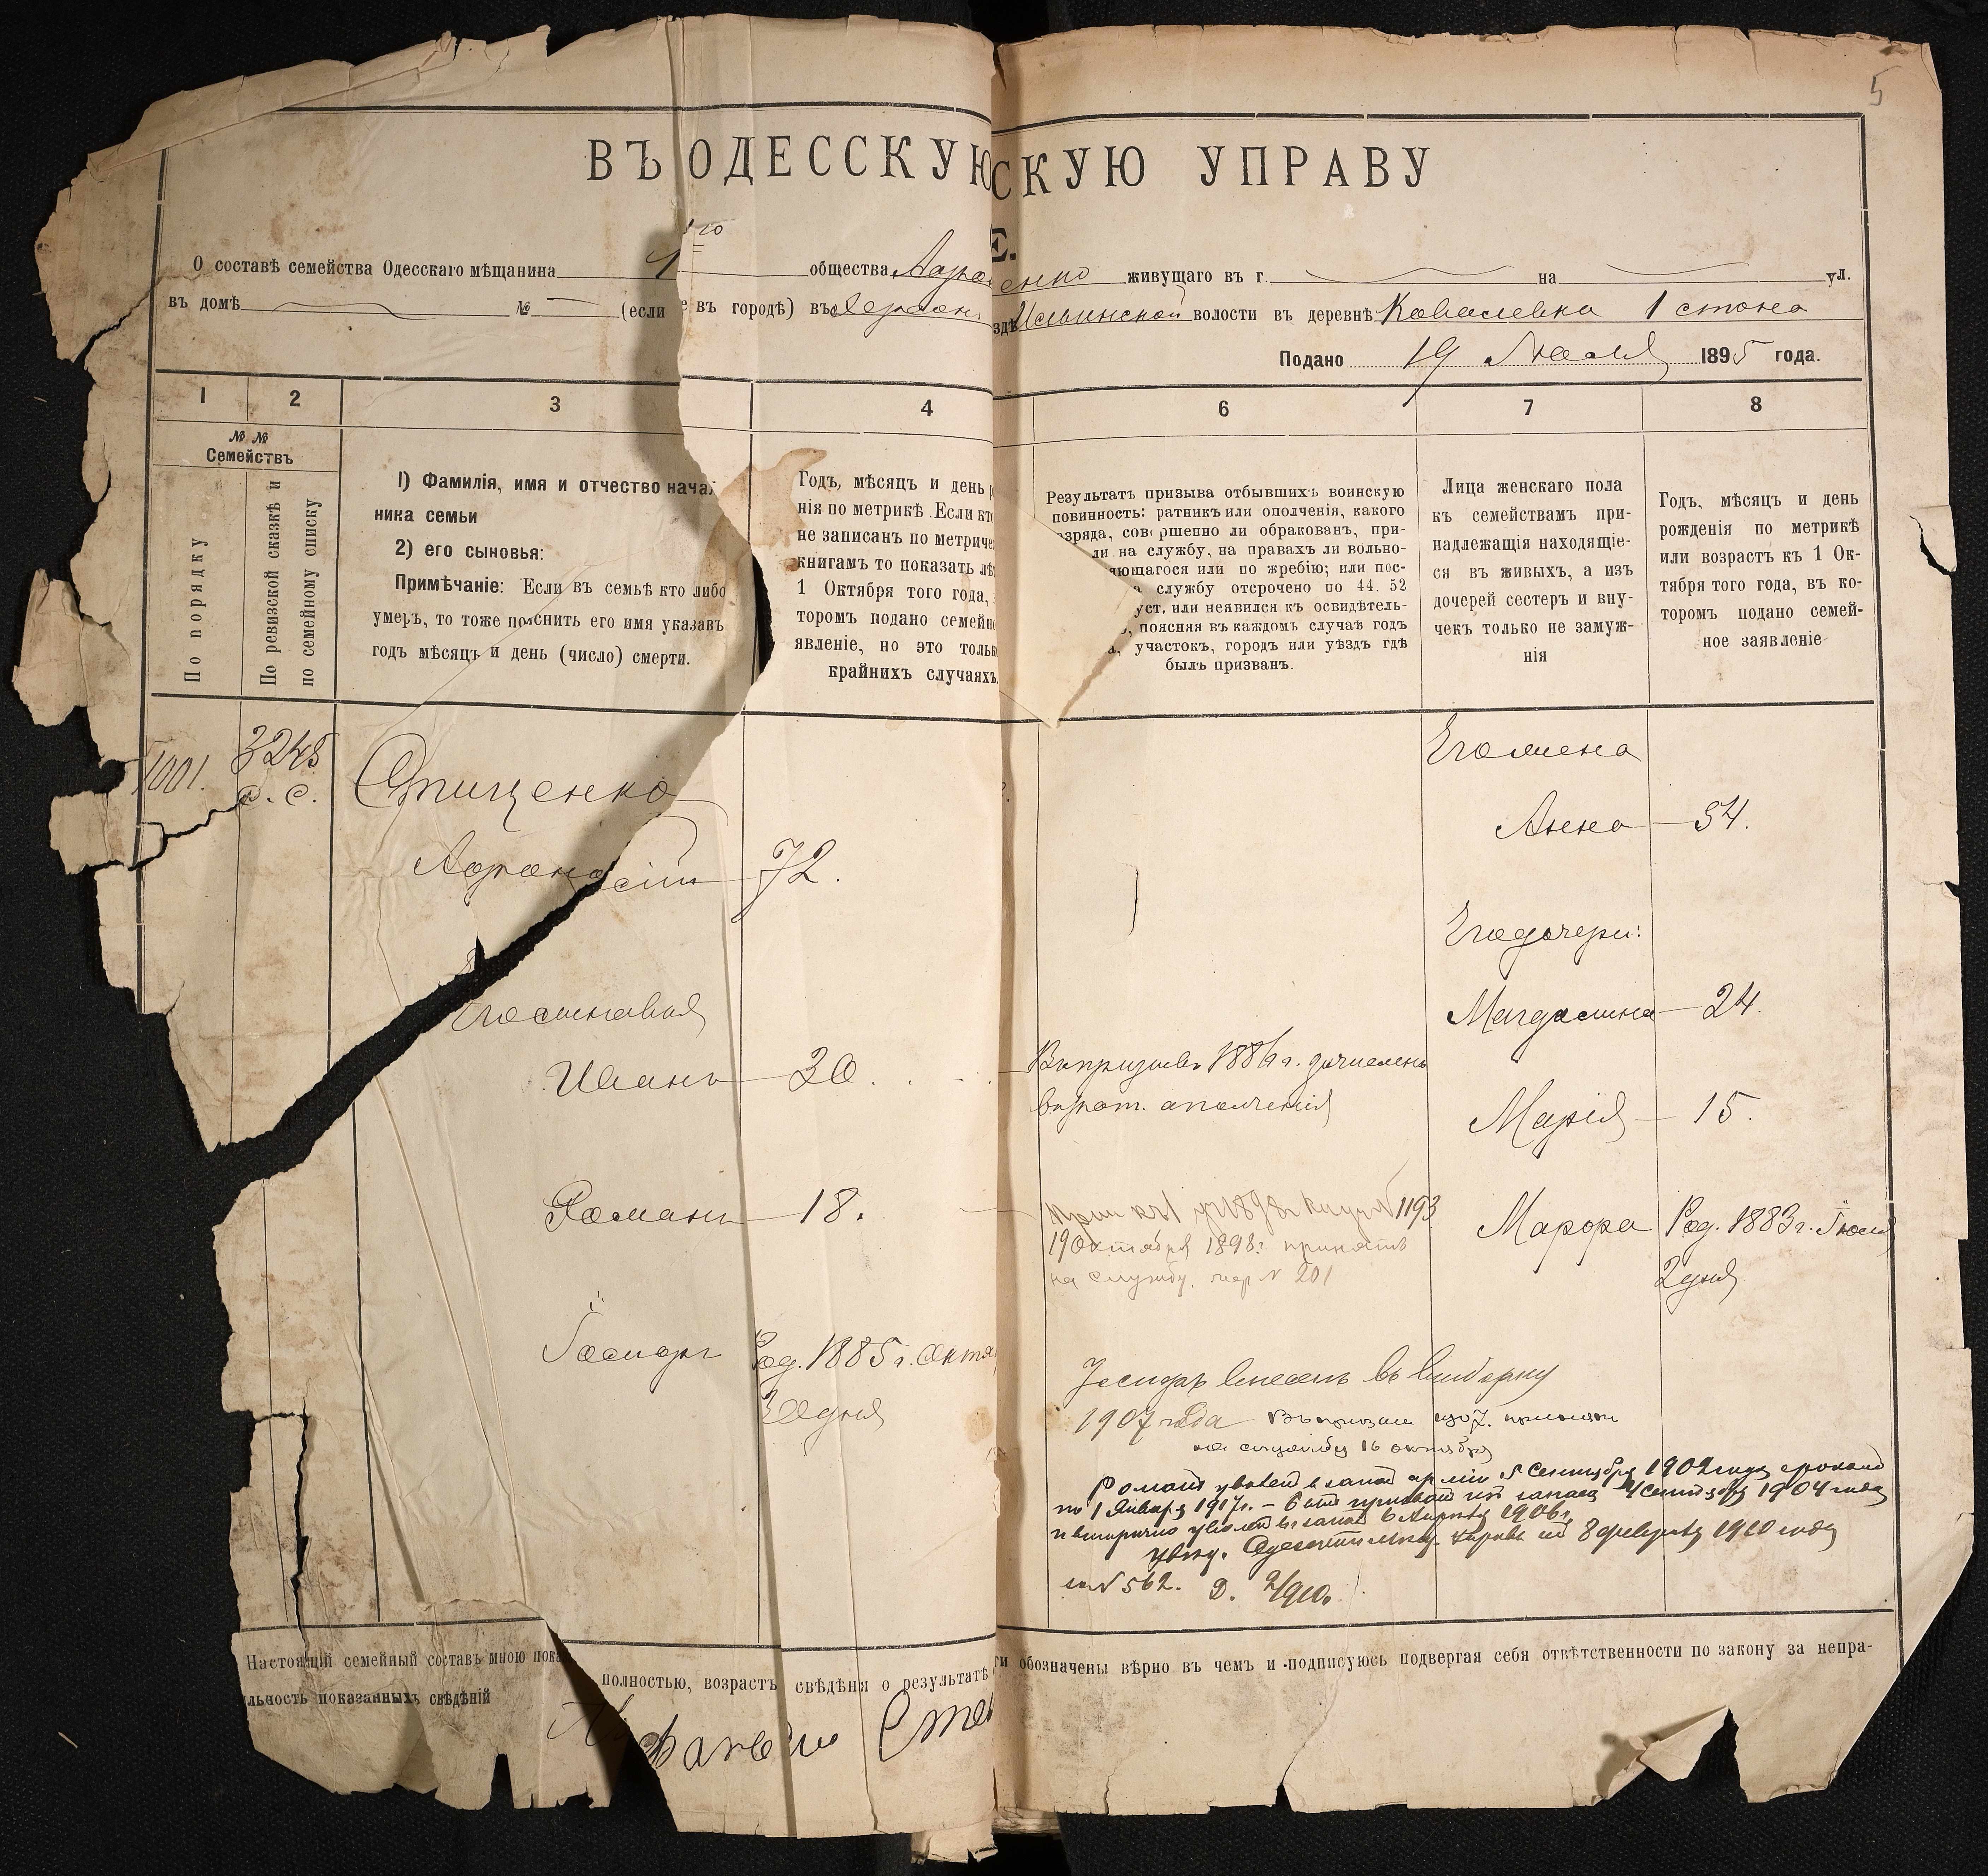 5
ВЪ ОДЕССКУЮ
СКУЮ УПРАВУ
Е.
О составѣ семейства Одесскаго мѣщанина 1го общества
енко живущаго въ г. на ул.
въ домѣ № (если е въ городѣ) въ Херсон
здѣ Ильинской волости въ деревнѣ Ковалевка 1 стана
Подано 19 1895 года.
1 2 3 4 6 7 8
№ №
Семействъ
По порядку
По ревизской сказкѣ и
по семейному списку
1) Фамилія, имя и отчество нача
ника семьи
2) его сыновья:
Примѣчаніе: Если въ семьѣ кто либо
умеръ, то тоже пояснить его имя указавъ
годъ мѣсяцъ и день (число) смерти.
Годъ, мѣсяцъ и день р
нія по метрикѣ. Если кто
не записанъ по метриче
книгамъ то показать лѣ
1 Октября того года,
торомъ подано семейн
явленіе, но это тольк
крайнихъ случаяхъ.
Результатъ призыва отбывшихъ воинскую
повинность: ратникъ или ополченія, какого
азряда, совершенно ли обракованъ, при-
ли на службу, на правахъ ли вольно-
яющагося или по жребію; или пос-
а службу отсрочено по 44, 52
уст. или неявился къ освидѣтель-
, поясняя въ каждомъ случаѣ годъ
а, участокъ, городъ или уѣздъ гдѣ
былъ призванъ.
Лица женскаго пола
къ семействамъ при-
надлежащія находящіе-
ся въ живыхъ, а изъ
дочерей сестеръ и вну-
чекъ только не замуж-
нія
Годъ, мѣсяцъ и день
рожденія по метрикѣ
или возрастъ къ 1 Ок-
тября того года, въ ко-
торомъ подано семей-
ное заявленіе
1001. 3245
с. с.
Стищенко
Афанасій 72.
Его жена
Анна 54.
Его дочери:
Его сыновья
Магдалина 24.
Иванъ 30.
Въ призывъ 1886 г. зачисленъ
въ рат. ополченія
Марія 15.
Романъ 18.
1193
19 Октября 1898 г. принятъ
на службу. жер № 201
Марфа Род. 1883 г. Іюля
2 дня
Іосифъ Род. 1885 г. Октя
30 дня
Іосифъ внесенъ въ выборку
1907 года Въ призывъ 1907. принятъ
на службу 16 октября
Романъ уволенъ въ запасъ арміи 5 Сентября 1902 года срокомъ
по 1 Января 1917 г. – былъ призванъ изъ запаса 4 Сентября 1904 года
и вторично уволенъ въ запасъ 6 1906 г.
Одесской управы отъ 8 февраля 1910 года
за № 562.
Настоящій семейный составъ мною пока полностью, возрастъ свѣдѣнія о результатѣ
ги обозначены вѣрно въ чемъ и подписуюсь подвергая себя отвѣтственности по закону за непра-
льность показанныхъ свѣдѣній